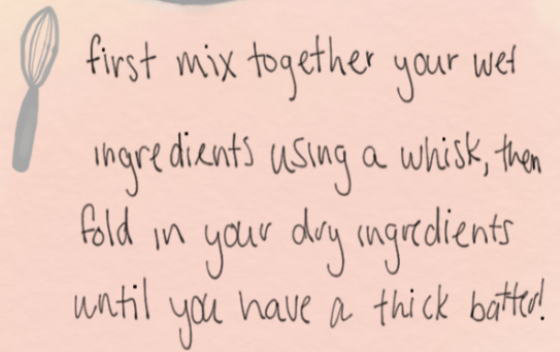 first mix together your wet
ingredients using a whisk, then
fold in your dry ingredients
until you have a thick batter!